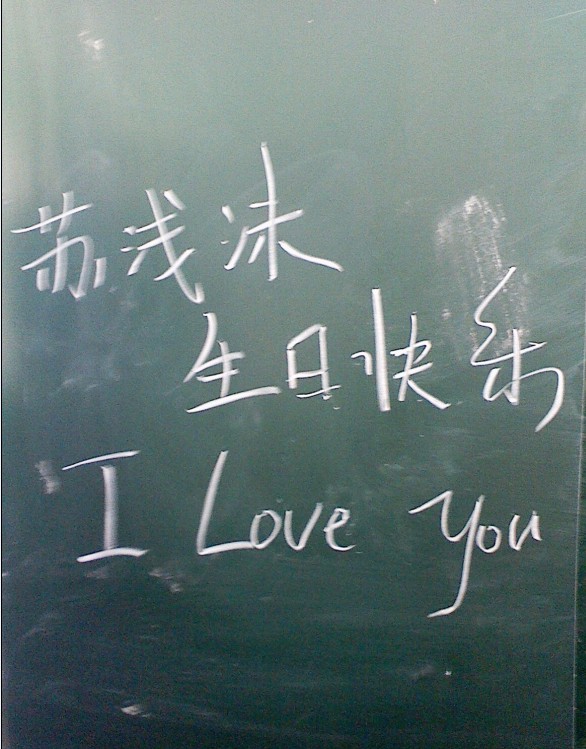 苏浅沫
生日快乐
I Love You